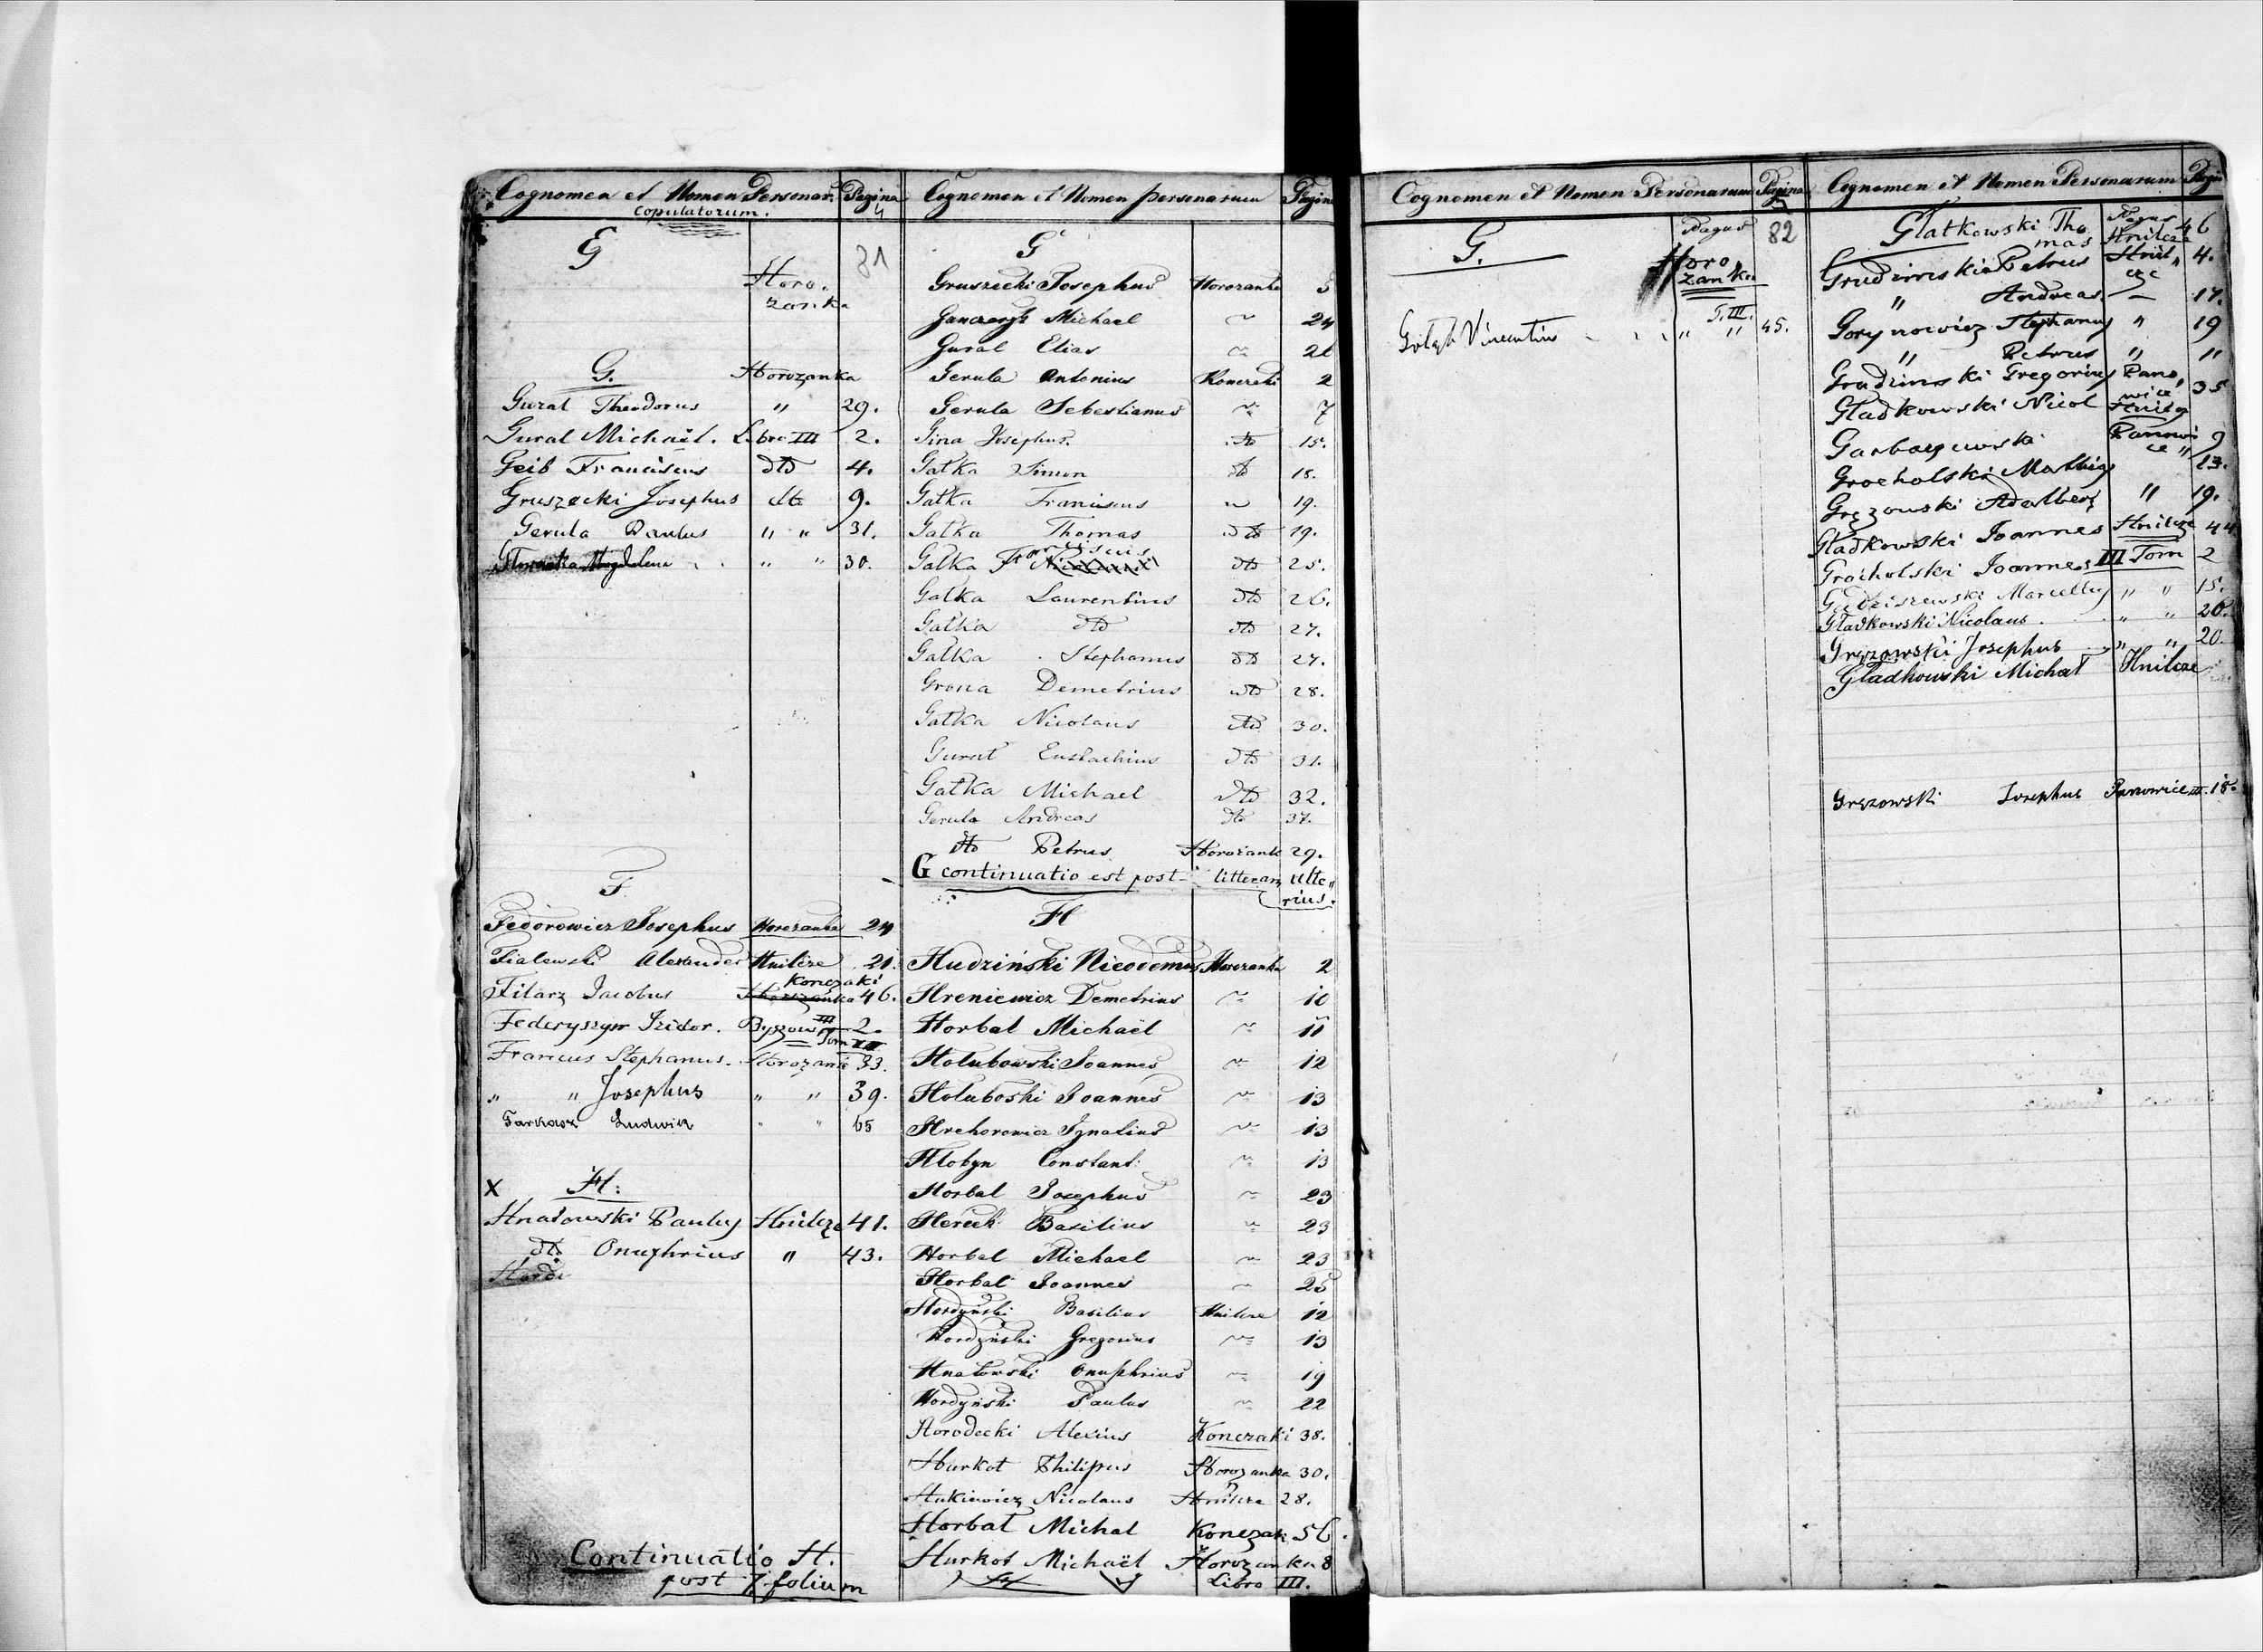 Cognomen et Nomen Personar. Pagina
copulatorum. 4
G 81
Horo-
zanka
G. Horozanka
Gural Theodorus " 29.
Gural Michaël. Libro III 2.
Geib Franciscus dtto 4.
Gruszecki Josephus dtto 9.
Gerula Paulus " " 31.
Magdalena " " 30.
F.
Fedorowicz Josephus Horozanka 24
Fialewski Alexander Hnilcze 21.
Konczaki
Filarz Jacobus Horozanka 46.
Federyszyn Izidor. Byszow III 2.
Tom III
Francus Stephanus. Horozank 33.
" " Josephus " " 39.
Farkasz Ludwik " " 65
X H:
Hnatowski Paulus Hnilcze 41.
dtto Onuphrius " 43.
Hord
Continuatio H.
post 7 folium
Cognomen et Nomen personarum Pagina
G
Gruszecki Josephus Horozanka 5
Michael ~ 24
Gural Elias ~ 26
Gerula Antonius Konczaki 2
Gerula Sebestianus ~ 7
Gina Josephus. dtto 15.
Gałka Simon dtto 18.
Gałka Franciscus ~ 19.
Gałka Thomas dtto 19.
Gałka Franciscus dtto 25.
Gałka Laurentius dtto 26.
Gałka dtto dtto 27.
Gałka Stephanus dtto 27.
Grona Demetrius dtto 28.
Gałka Nicolaus dtto 30.
Gurat Eustachius dtto 31.
Gałka Michael dtto 32.
Gerula Andreas dtto 37.
dtto Petrus Horozank 29.
G continuatio est post litteram ulte"
rius.
H
Hudziński Nicodemus Horozanka 2
Hreniewicz Demetrius ~ 10
Horbal Michaël ~ 11
Holubowski Joannes ~ 12
Holuboski Joannes ~ 13
Hrehorowicz Ignatius ~ 13
Hlobyn Constant: ~ 13
Horbal Josephus ~ 23
Herech Basilius ~ 23
Horbal Michael ~ 23
Horbal Joannes ~ 25
Hordyński Basilius Hnilcze 12
Hordyński Gregorius ~ 13
Hnatowski Onuphrius ~ 19
Hordyński Paulus ~ 22
Horodecki Alexius Konczaki 38.
Hurkot Philipus Horozanka 30.
Hukiewicz Nicolaus Hnilcze 28.
Horbał Michał Konczaki 56.
Hurkot Michaël Horozanka 8
Libro III.
Cognomen et Nomen Personarum Pagina
5
G. Pagus 82
Horo"
zanka
T. III.
Gołąb Vincentius " " 45.
Cognomen et Nomen Personarum Pagin
Glatkowski Tho Pagus 46
mas Hnilcze
Grudzinski Petrus Hnil" 4.
cze
" Andreas — 17.
Gorynowicz Stephanus " 19
" Petrus " "
Grudzinski Gregorius Pano" 35
wice
Gladkowski Nicol Hnilcz
Garbaczewski Panowi 9
ce "
Grocholski Mathias 13.
Gręzowski Adalbert " 19.
Gładkowski Joannes Hnilcze 44
Grocholski Joannes III Tom 2
Marcellus " " 15.
Gładkowski Nicolaus. " " 20.
Gręzowski Josephus " " 20.
Gladkowski Michał Hnilcze
Gręzowski Josephus Panowice III. 18.